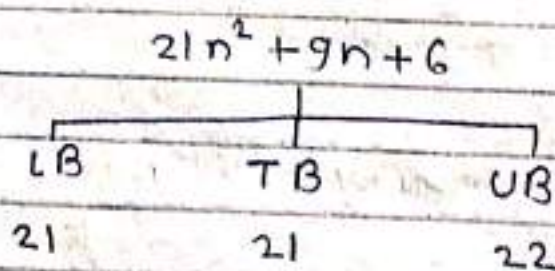 21n² + 9n + 6
LB TB UB
21 21 22